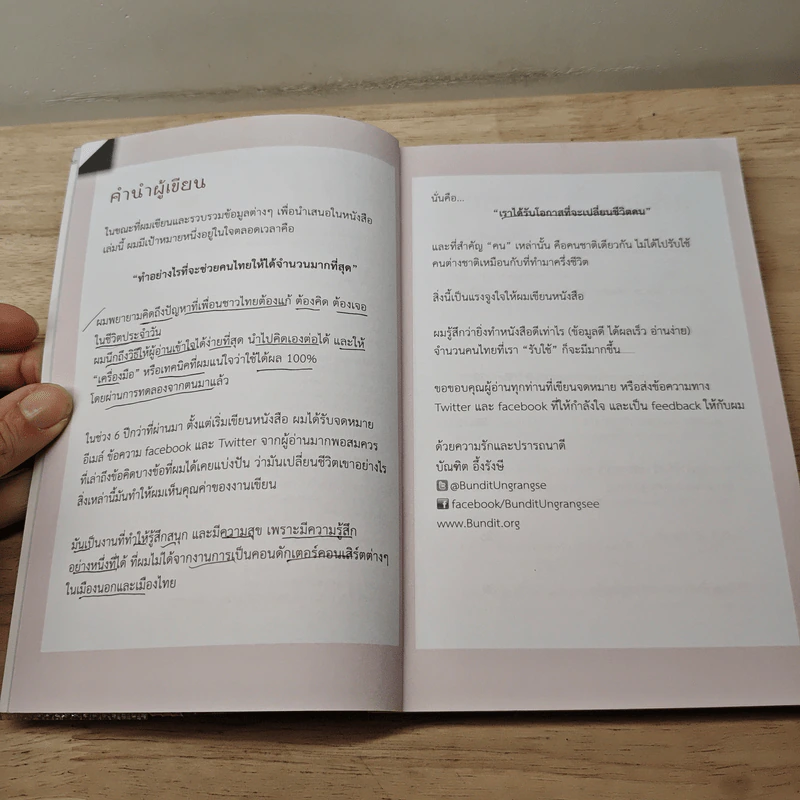 คำนำผู้เขียน
ในขณะที่ผมเขียนและรวบรวมข้อมูลต่างๆ เพื่อนำเสนอในหนังสือ
เล่มนี้ ผมมีเป้าหมายหนึ่งอยู่ในใจตลอดเวลาคือ
“ทำอย่างไรที่จะช่วยคนไทยให้ได้จำนวนมากที่สุด”
ผมพยายามคิดถึงปัญหาที่เพื่อนชาวไทยต้องแก้ ต้องคิด ต้องเจอ
ในชีวิตประจำวัน
ผมนึกถึงวิธีให้ผู้อ่านเข้าใจได้ง่ายที่สุด นำไปคิดเองต่อได้ และให้
“เครื่องมือ” หรือเทคนิคที่ผมแน่ใจว่าใช้ได้ผล 100%
โดยผ่านการทดลองจากตนมาแล้ว
ในช่วง 6 ปีกว่าที่ผ่านมา ตั้งแต่เริ่มเขียนหนังสือ ผมได้รับจดหมาย
อีเมล์ ข้อความ facebook และ Twitter จากผู้อ่านมากพอสมควร
ที่เล่าถึงข้อคิดบางข้อที่ผมได้เคยแบ่งปัน ว่ามันเปลี่ยนชีวิตเขาอย่างไร
สิ่งเหล่านี้มันทำให้ผมเห็นคุณค่าของงานเขียน
มันเป็นงานที่ทำให้รู้สึกสนุก และมีความสุข เพราะมีความรู้สึก
อย่างหนึ่งที่ได้ ที่ผมไม่ได้จากงานการเป็นคอนดักเตอร์คอนเสิร์ตต่างๆ
ในเมืองนอกและเมืองไทย
นั่นคือ...
“เราได้รับโอกาสที่จะเปลี่ยนชีวิตคน”
และที่สำคัญ “คน” เหล่านั้น คือคนชาติเดียวกัน ไม่ได้ไปรับใช้
คนต่างชาติเหมือนกับที่ทำมาครึ่งชีวิต
สิ่งนี้เป็นแรงจูงใจให้ผมเขียนหนังสือ
ผมรู้สึกว่ายิ่งทำหนังสือดีเท่าไร (ข้อมูลดี ได้ผลเร็ว อ่านง่าย)
จำนวนคนไทยที่เรา “รับใช้” ก็จะมีมากขึ้น
ขอขอบคุณผู้อ่านทุกท่านที่เขียนจดหมาย หรือส่งข้อความทาง
Twitter และ facebook ที่ให้กำลังใจ และเป็น feedback ให้กับผม
ด้วยความรักและปรารถนาดี
บัณฑิต อึ้งรังษี
@BunditUngrangse
facebook/BunditUngrangsee
www.Bundit.org